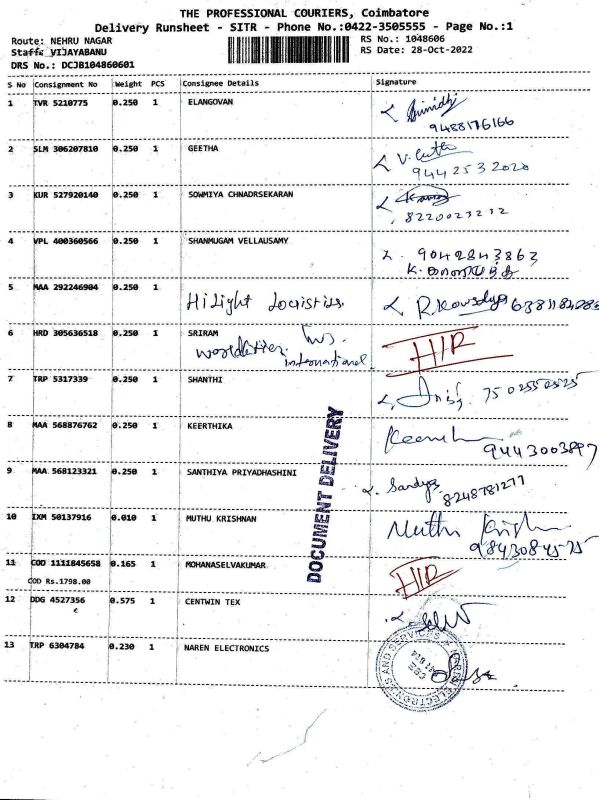 THE PROFESSIONAL COURIERS, Coimbatore
Delivery Runsheet - SITR - Phone No.:0422-3505555 - Page No.:1
Route: NEHRU NAGAR RS No.: 1048606
Staff: VIJAYABANU RS Date: 28-Oct-2022
DRS No.: DCJB104860601
S No Consignment No Weight PCS Consignee Details Signature
1 TVR 5210775 0.250 1 ELANGOVAN
9488176166
2 SLM 306207810 0.250 1 GEETHA V.
9442532020
3 KUR 527920140 0.250 1 SOWMIYA CHNADRSEKARAN
8220023232
4 VPL 400360566 0.250 1 SHANMUGAM VELLAUSAMY 9042843863
K.
5 MAA 292246904 0.250 1 Hilight Logistics. R.Kowsalya
6 HRD 305636518 0.250 1 SRIRAM HIR
international
7 TRP 5317339 0.250 1 SHANTHI 7502550525
8 MAA 568876762 0.250 1 KEERTHIKA
9443003897
9 MAA 568123321 0.250 1 SANTHIYA PRIYADHASHINI Sandya 8248781277
DOCUMENT DELIVERY
10 IXM 50137916 0.010 1 MUTHU KRISHNAN Muthu
9843084575
11 COD 1111845658 0.165 1 MOHANASELVAKUMAR HIR
COD Rs.1798.00
12 DDG 4527356 0.575 1 CENTWIN TEX
13 TRP 6304784 0.230 1 NAREN ELECTRONICS